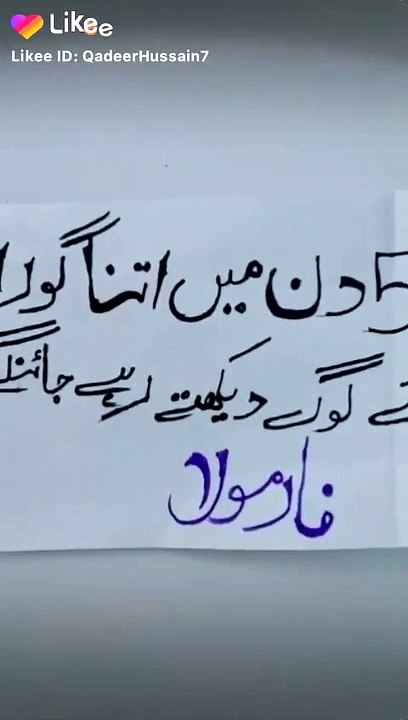 Likee
Likee ID: QadeerHussain7
5 دن میں اتنا گورا
لوگ دیکھتے رہے جائنگے
فارمولا